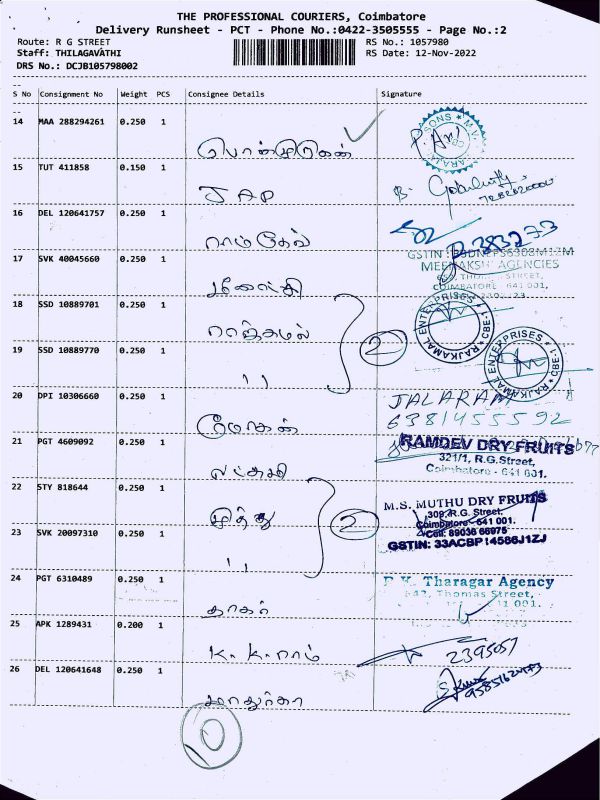 THE PROFESSIONAL COURIERS, Coimbatore
Delivery Runsheet - PCT - Phone No.:0422-3505555 - Page No.:2
Route: R G STREET RS No.: 1057980
Staff: THILAGAVATHI RS Date: 12-Nov-2022
DRS No.: DCJB105798002
S No Consignment No Weight PCS Consignee Details Signature
14 MAA 288294261 0.250 1
பொன்முருகன்
15 TUT 411858 0.150 1
JAP
16 DEL 120641757 0.250 1
ராம்தேவ்
GSTIN
MEENAKSHI AGENCIES
STREET,
COIMBATORE - 641 001.
17 SVK 40045660 0.250 1
மீனாட்சி
18 SSD 10889701 0.250 1
ராஜ்கமல்
2
RAJKAMAL ENTERPRISES CBE-1
19 SSD 10889770 0.250 1
"
RAJKAMAL ENTERPRISES CBE-1
20 DPI 10306660 0.250 1
JALARAM
6381455592
21 PGT 4609092 0.250 1
RAMDEV DRY FRUITS
321/1, R.G.Street,
Coimbatore - 641 001.
22 STY 818644 0.250 1
முத்து
2
M.S. MUTHU DRY FRUITS
309, R.G. Street,
Coimbatore - 641 001.
Cell: 89036 66975
GSTIN: 33ACBP14586J1ZJ
23 SVK 20097310 0.250 1
"
24 PGT 6310489 0.250 1
தாகர்
Tharagar Agency
Thomas Street,
25 APK 1289431 0.200 1
K. K. ராம்
2395057
26 DEL 120641648 0.250 1
மாதுர்கா
0